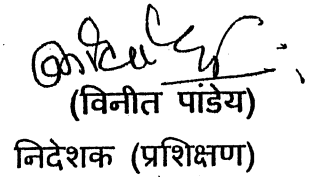 (विनीत पांडेय)
निदेशक (प्रशिक्षण)